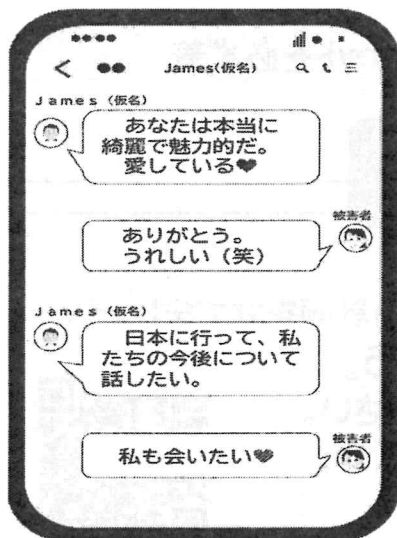 James(仮名)
James(仮名)
あなたは本当に
綺麗で魅力的だ。
愛している❤
被害者
ありがとう。
うれしい(笑)
James(仮名)
日本に行って、私
たちの今後について
話したい。
被害者
私も会いたい❤